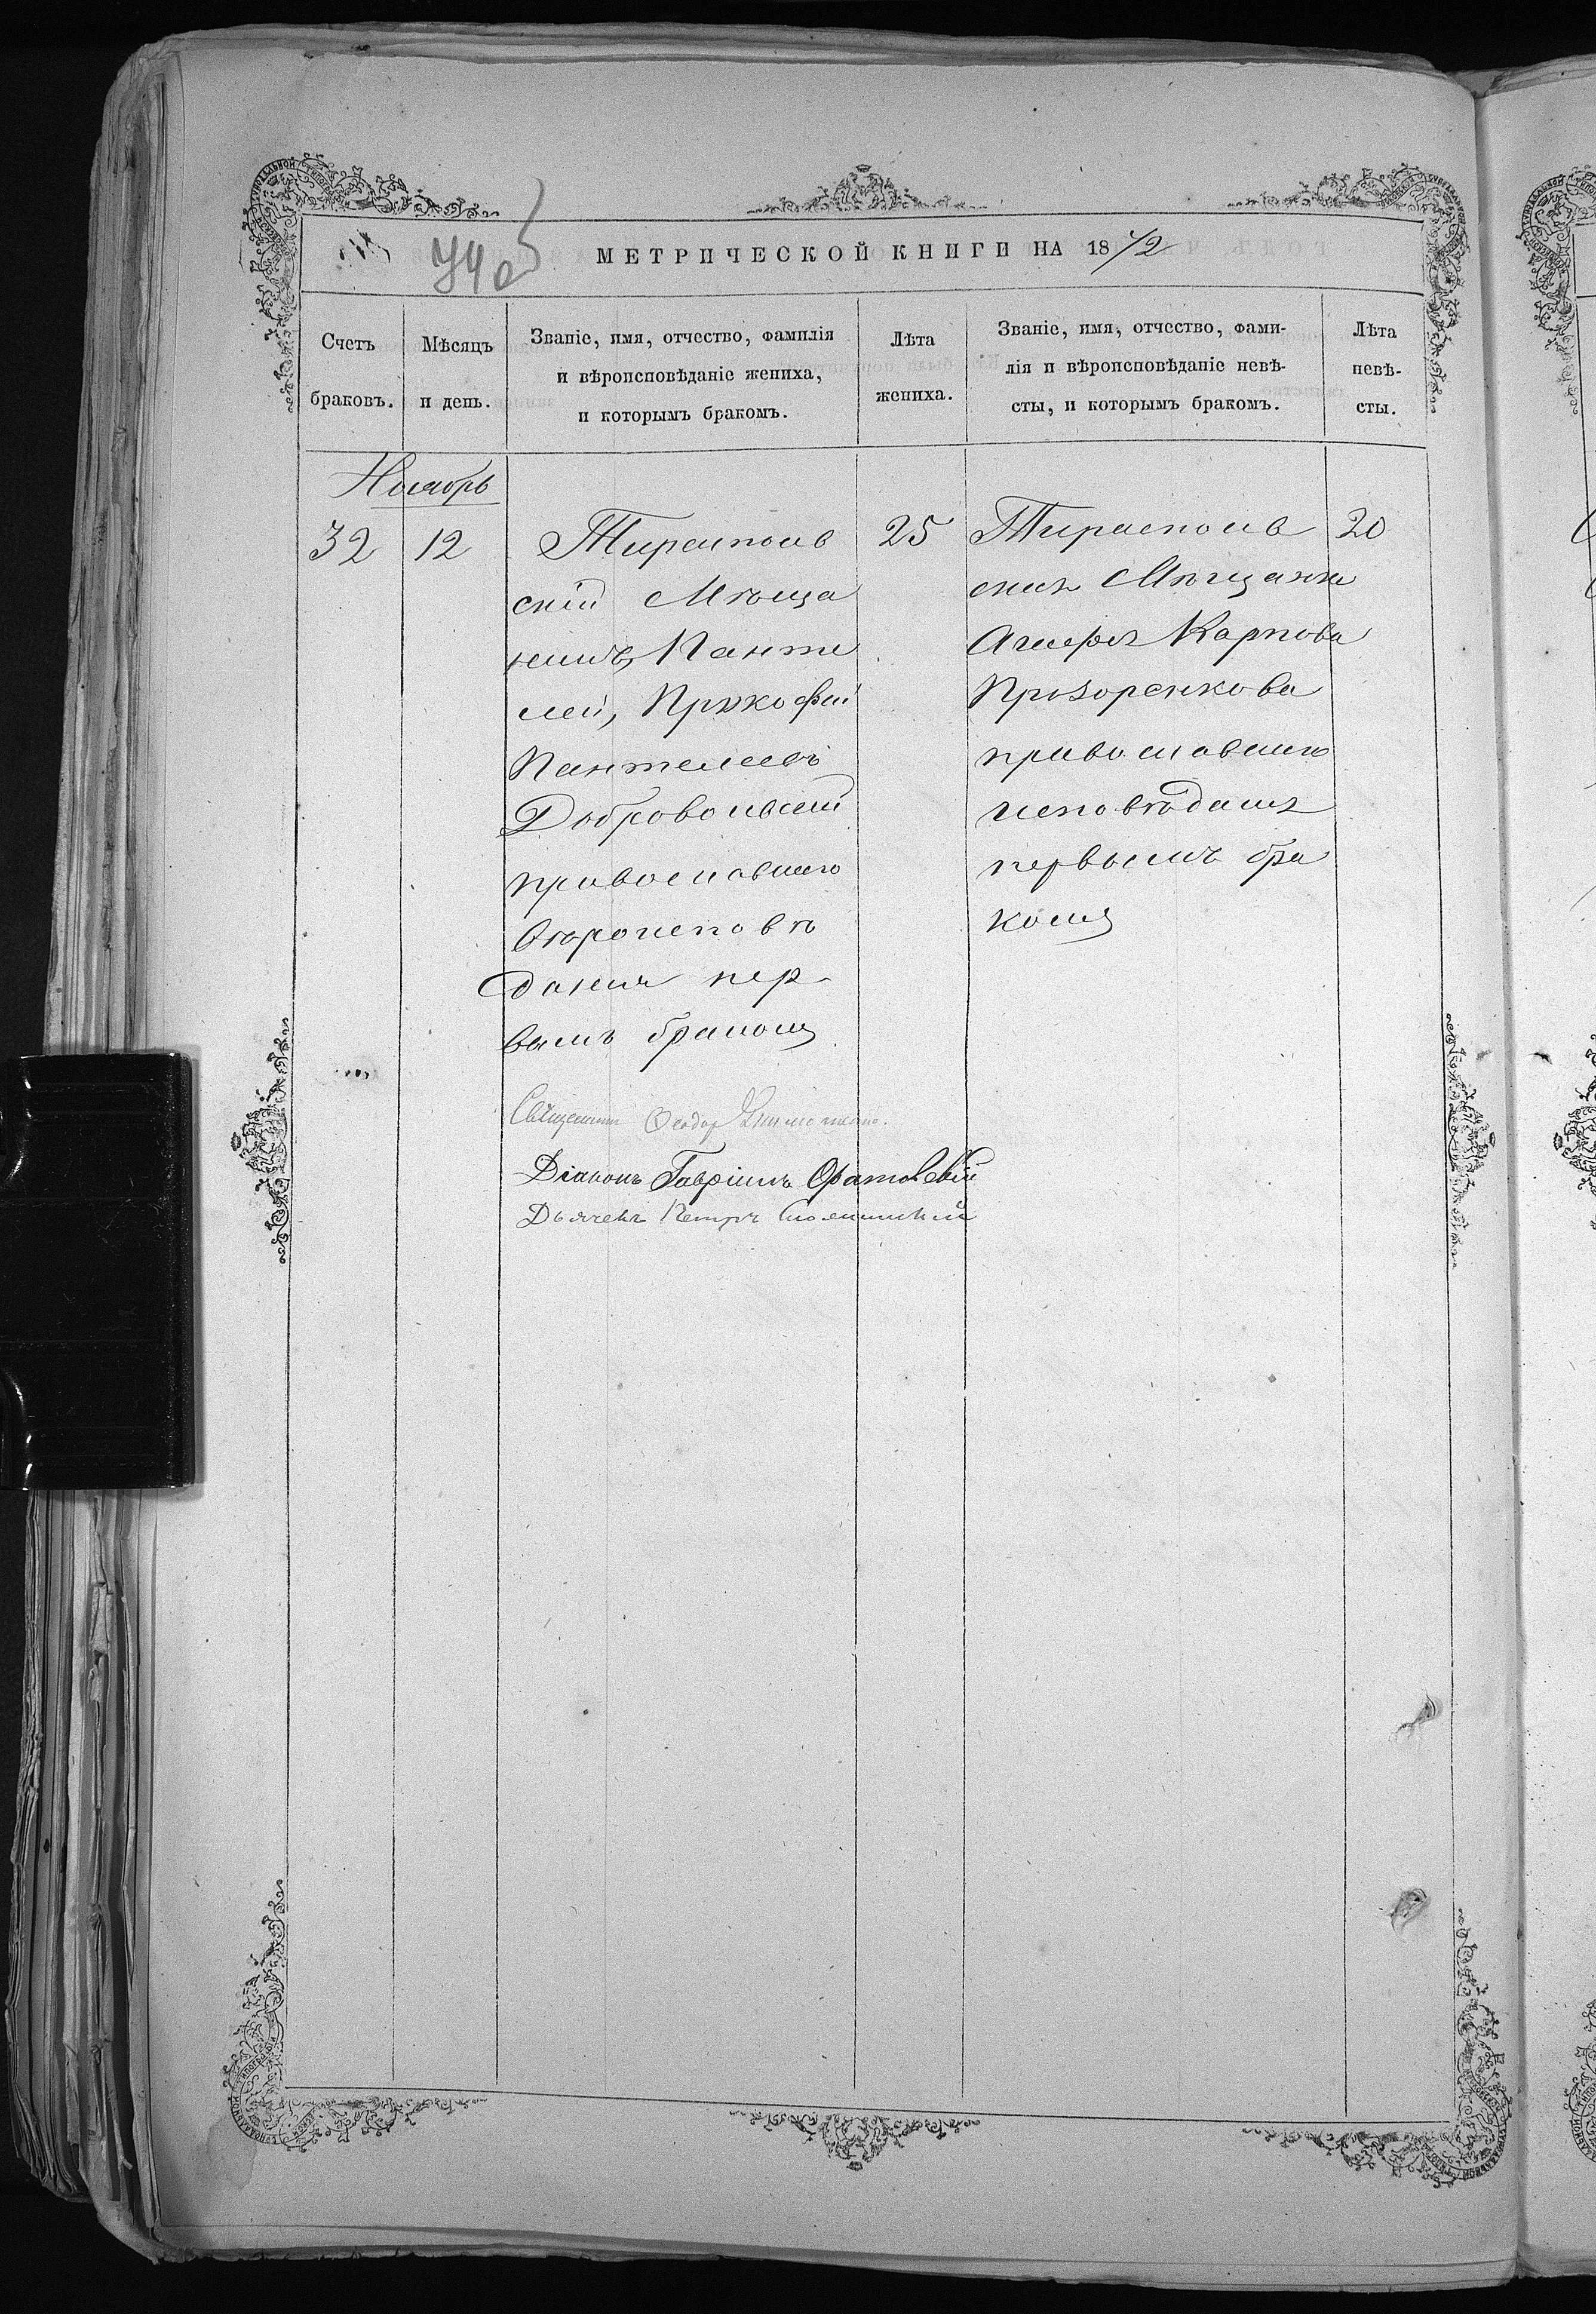 МЕТРИЧЕСКОЙ КНИГИ НА 1872
Счетъ браковъ.
Мѣсяцъ и день.
Званіе, имя, отчество, фамилія
и вѣроисповѣданіе жениха,
и которымъ бракомъ.
Лѣта жениха.
Званіе, имя, отчество, фами-
лія и вѣроисповѣданіе невѣ-
сты, и которымъ бракомъ.
Лѣта невѣ-
сты.
Ноябрь
32
12
Тирасполь
скій Мѣща
нинъ, Панте
лей, Прокофій
Пантелеевъ
Добровольскій
православнаго
вѣроисповѣ
данія пер
вымъ бракомъ
25
Тирасполь
ская Мѣщанка
Карпова
Прозоренкова
православнаго
исповѣданія
первымъ бра
комъ
20
Священникъ Ѳеодор
Діаконъ Гавріилъ Оратовскій
Дьячекъ Петръ